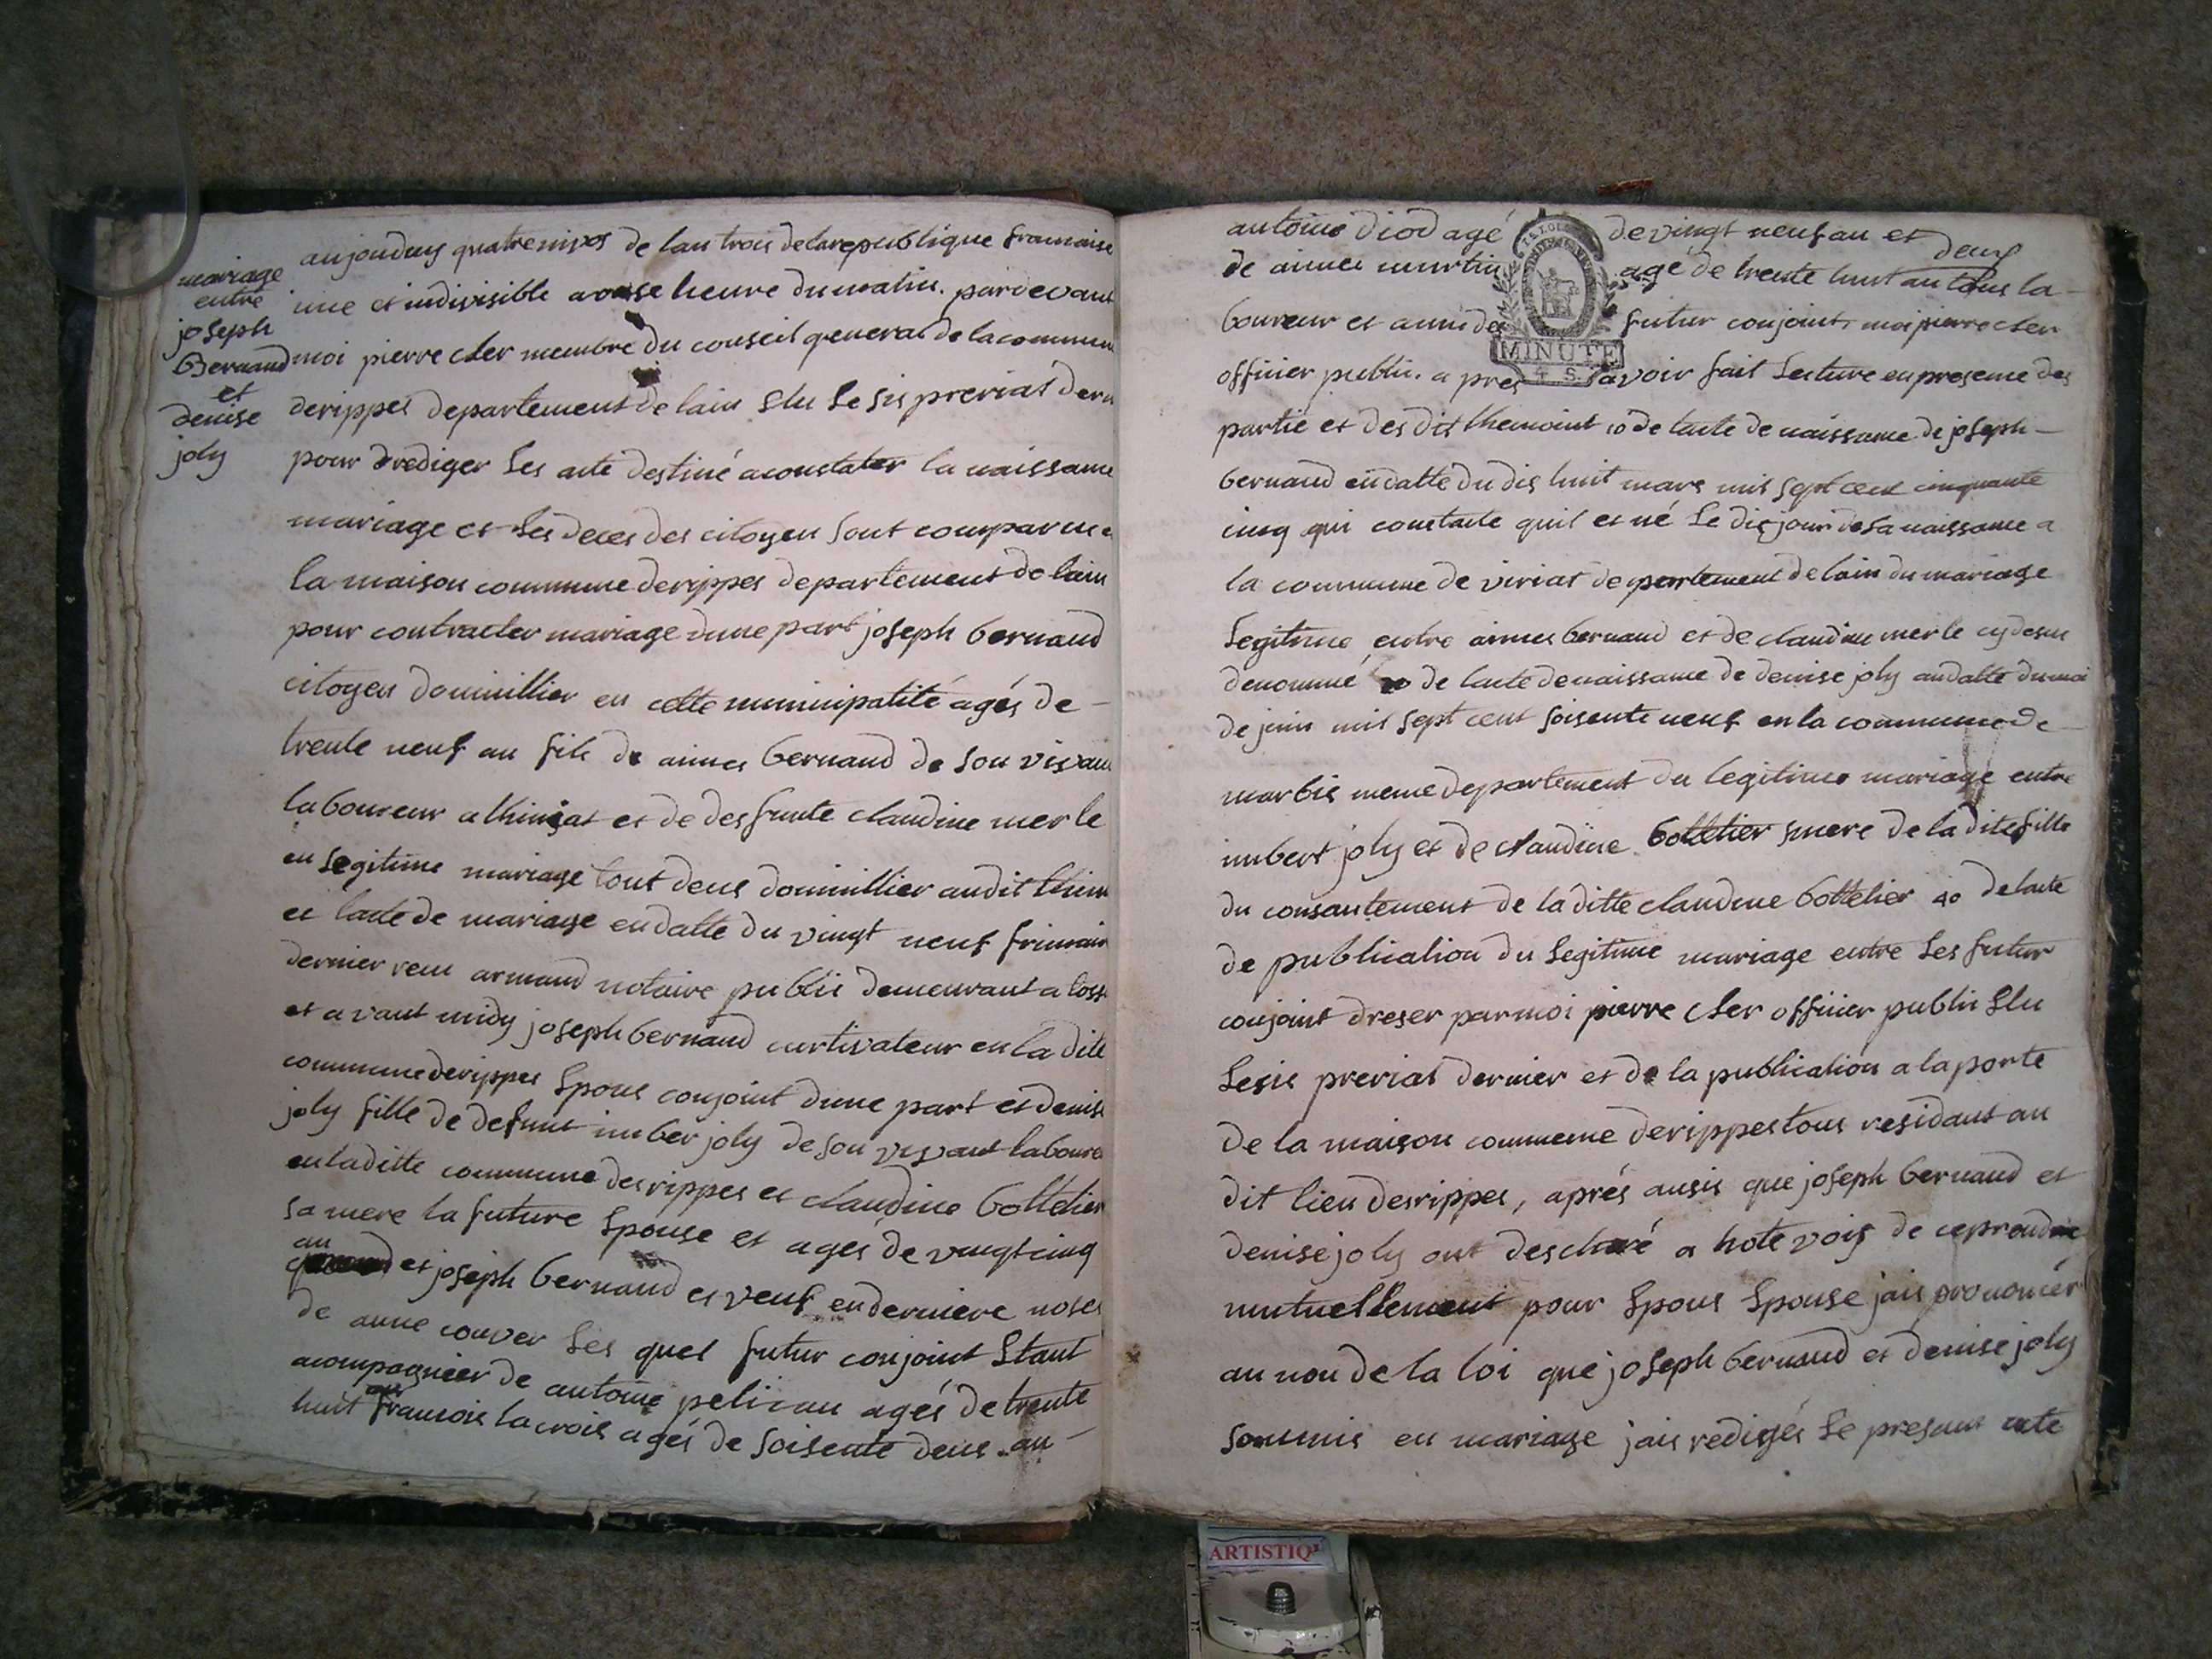 mariage
entre
joseph
Bernaud
et
denise
joly
aujourduy quatre nivos de lan trois de la republique francaise
une et indivisible a onse heure du matin. pardevant
moi pierre cler membre du conseil general de la commun
derippes departement de lain Elu le sis prerial dern
pour drediger les acte destiné aconstater la naissance
mariage et les deces des citoyen sont comparu
la maison commune derippes departement de lain
pour contracter mariage dune part joseph bernaud
citoyen domicillier en cette municipalité agés de
trente neuf an fils de aimes bernaud de son vivant
laboureur a et de desfunte claudine merle
en legitime mariage tout deus domicillier audit
et lacte de mariage en datte du vingt neuf frimair
dernier reçu armaud notaire public demeurant a
et avant midy joseph bernaud curtivateur en la dite
commune derippes Epous conjoint dune part et denise
joly fille de defunt imber joly de son vivant laboure
en laditte commune desrippes et claudine bottelier
sa mere la future Epouse et agés de vingt cinq
an
et joseph bernaud et veuf en derniere noses
de anne couver les quel futur conjoint Etant
acompagnier de antoine pelican agés de trente
an
huit francois lacrois agés de soisente deus an
antoine diod agé de vingt neuf an et
deus
de aimes murtin agé de trente huit an tous la
boureur et ami des futur conjoint, moi pierre cler
officier public. apres avoir fait Lecture en presence des
MINUTE
4 S.
partie et des dit themoint 10 de lacte de naissance de joseph
bernaud en datte du dis huit mars mil sept cent cinquante
cinq qui constate quil et né le dis jour de sa naissance a
la commune de viriat departement de lain du mariage
Legitime entre aimes bernaud et de claudine merle cy desus
denommé 20 de lacte de naissance de denise joly an datte du moi
de juin mil sept cent soisente neuf en la commune de
marbis meme departement du legitime mariage entre
imbert joly et de claudine bottelier mere de la dite fille
du consantement de la ditte claudine bottelier 40 de lacte
de publication du Legitime mariage entre Les futur
conjoint dreser par moi pierre cler officier public Elu
Lesis prerial dernier et de la publication a la porte
de la maison commeme derippes tous residant au
dit lieu desrippes, aprés ausis que joseph bernaud et
denise joly ont descharé a hote vois de ceprendre
mutuellement pour Epous Epouse jais prononcér
au non de la loi que joseph bernaud et denise joly
sont unis en mariage jais redigés le presant acte
ARTISTIQ